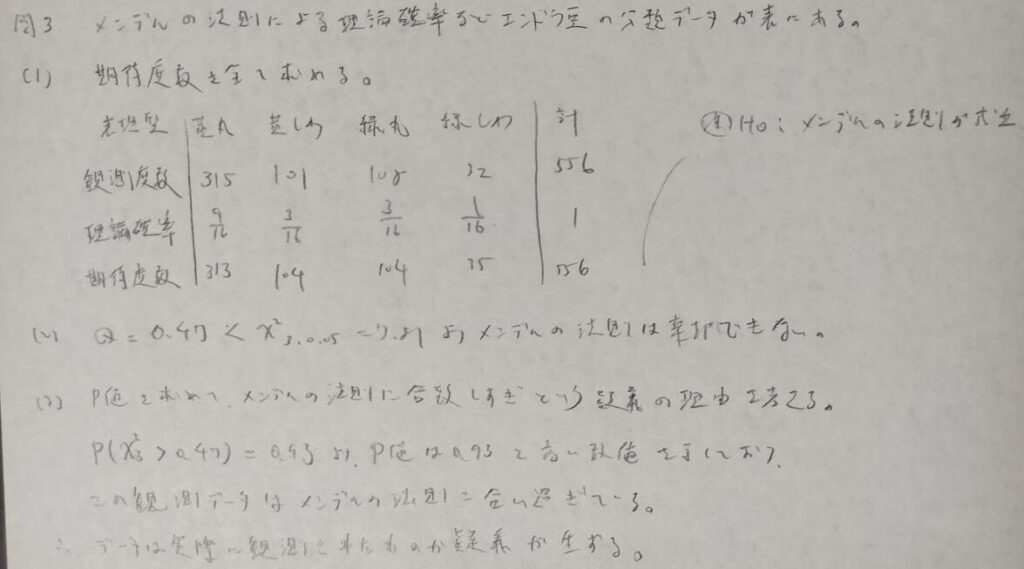 問3 メンデルの法則による理論確率でエンドウ豆の分類データが表にある。
(1) 期待度数を全て求める。
表現型 黄丸 黄しわ 緑丸 緑しわ 計
観測度数 315 101 108 32 556
理論確率 9/16 3/16 3/16 1/16 1
期待度数 313 104 104 35 556
(注) H0: メンデルの法則が成立
(2) Q = 0.47 < χ²3,0.05 = 7.81 よりメンデルの法則は棄却できない。
(3) P値を求めて、メンデルの法則に合致しすぎという疑義の理由を考える。
P(χ²3 > 0.47) = 0.93 より、P値は0.93と高い数値を示しており、
この観測データはメンデルの法則に合い過ぎている。
∴ データは実際に観測されたものか疑義が生ずる。